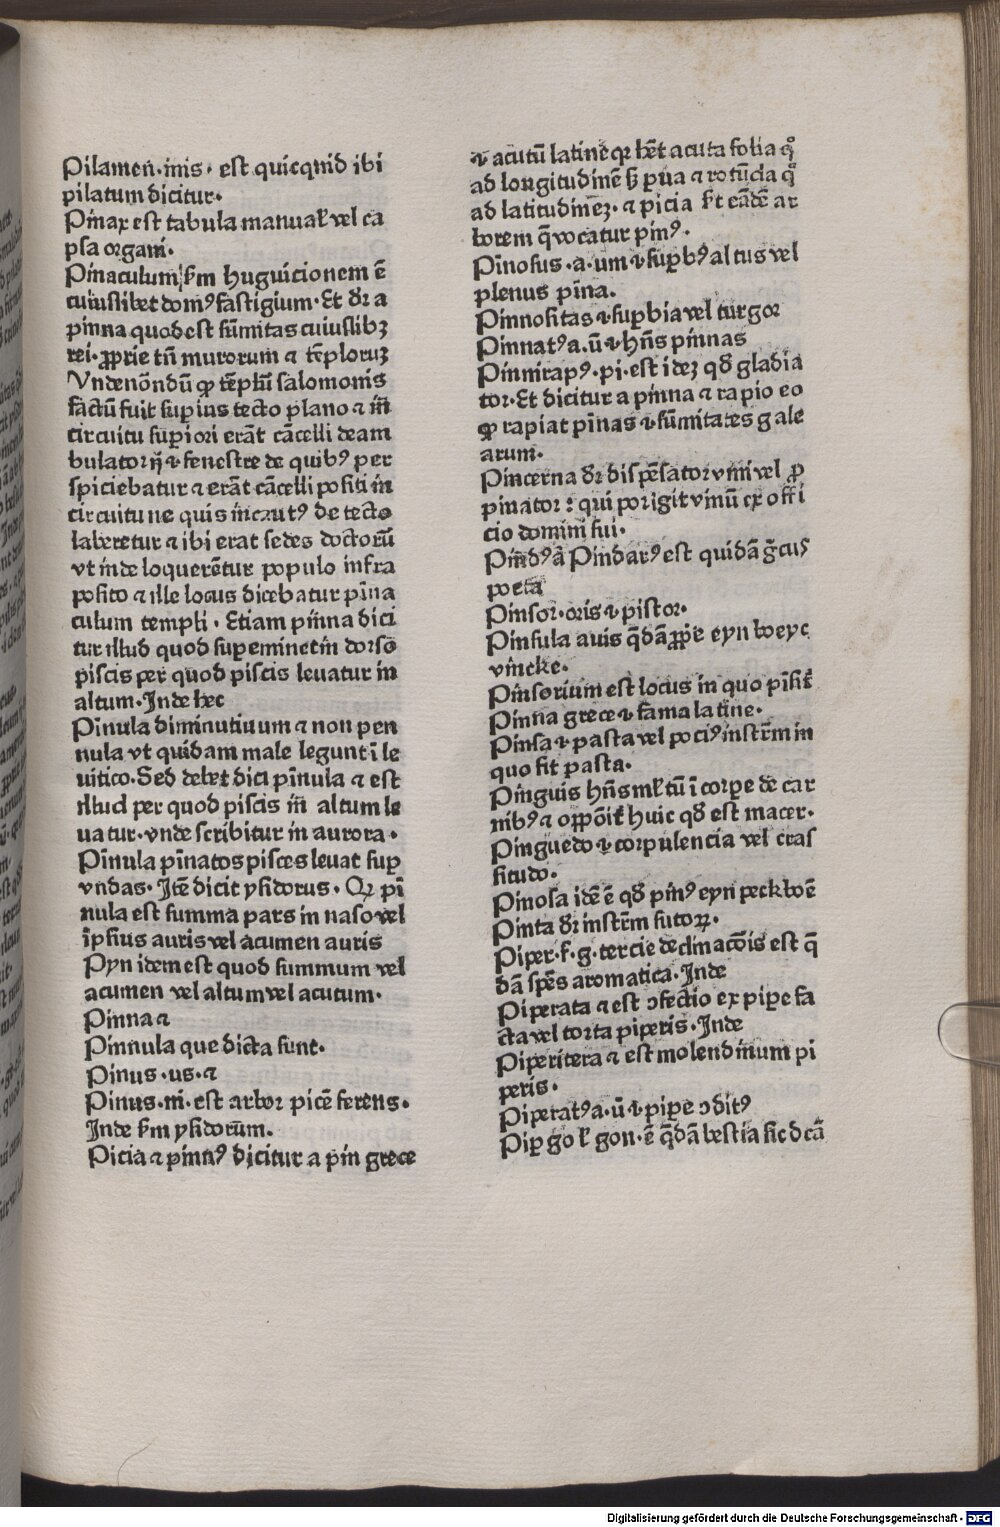 Pilamen·inis· est quicqnid ibi
pilatum dicitur·
Pinax est tabula manual᷎ vel ca
psa organi·
Pinaculum ẜm huguicionem ē
cuiuslibet domꝰ fastigium· Et dr̄ a
pinna quod est sūmitas cuiuslibꝫ
rei· ꝓprie tn̄ murorum ⁊ tēploruꝫ
Vnde nōndū ꝙ tēplū salomonis
factū fuit suꝑius tecto plano ⁊ in̄
circuitu suꝑiori erāt cācelli deam
bulatorij ⁊ fenestre de quibꝰ per
spiciebatur ⁊ erāt cācelli positi in
circuitu ne quis incautꝰ de tecto
laberetur ⁊ ibi erat sedes doctorū
vt inde loquerētur populo infra
posito ⁊ ille locus dicebatur pīna
culum templi · Etiam pinna dici
tur illud quod suꝑeminet in dorso
piscis per quod piscis leuatur in
altum· Inde hec
Pīnula diminutiuum ⁊ non pen
nula vt quidam male legunt ī le
uitico· Sed debet dici pīnula ⁊ est
illud per quod piscis in altum le
uatur· vnde scribitur in aurora·
Pīnula pīnatos pisces leuat suꝑ
vndas· Itē dicit ysidorus· Qꝛ pī
nula est summa pars in naso vel
ipsius auris vel acumen auris
Pyn idem est quod summum vel
acumen vel altum vel acutum·
Pinna ⁊
Pinnula que dicta sunt·
Pinus·us·⁊
Pinus·ni· est arbor picē ferens·
Inde ẜm ysidorum·
Picia ⁊ pinnꝰ dicitur a pin grece
⁊ acutū latine qꝛ hēt acuta folia qͦ
ad longitudinē ẜꝫ ꝑua ⁊ rotūda qͦ
ad latitudinēꝫ· ⁊ picia ẜt eādē ar
borem q̄ vocatur pinꝰ·
Pinosus·a·um ⁊ suꝑbꝰ altus vel
plenus pīna.
Pinnositas ⁊ suꝑbia vel turgor
Pinnatꝰ a·ū ⁊ hn̄s pinnas
Pinnirapꝰ·pi·est ideꝫ qd̄ gladia
tor· Et dicitur a pinna ⁊ rapio eo
ꝙ rapiat pīnas ⁊ sūmitates gale
arum·
Pincerna dr̄ dispēsator vini vel ꝓ
pinator : qui porigit vinū ex offi
cio domini sui·
Pindꝰ ā Pindarꝰ est quidā ḡcus
poeta
Pinsor·oris ⁊ pistor·
Pinsula auis q̄dā ꝓpe eyn boeyc
vincke·
Pinsorium est locus in quo pīsit᷎
Pinna grece ⁊ fama latine·
Pinsa ⁊ pasta vel pociꝰ instrm̄ in
quo fit pasta·
Pinguis hn̄s ml᷎tū ī corꝑe de car
nibꝰ ⁊ oppōit᷎ huic qd̄ est macer·
Pinguedo ⁊ corpulencia vel cras
situdo·
Pinosa idē ē qd̄ pinꝰ eyn peckboē
Pinta dr̄ instrm̄ sutoꝝ·
Piper·f·g·tercie declinacōis est q̄
dā spēs aromatica· Inde
Piperata ⁊ est ꝯfectio ex piꝑe fa
cta vel torta piperis· Inde
Piperitera ⁊ est molendinum pi
peris·
Piperatꝰ a·ū ⁊ piꝑe ꝯditꝰ
Piꝑgo l᷎ gon· ē q̄dā bestia sic dcā
Digitalisierung gefördert durch die Deutsche Forschungsgemeinschaft - DFG